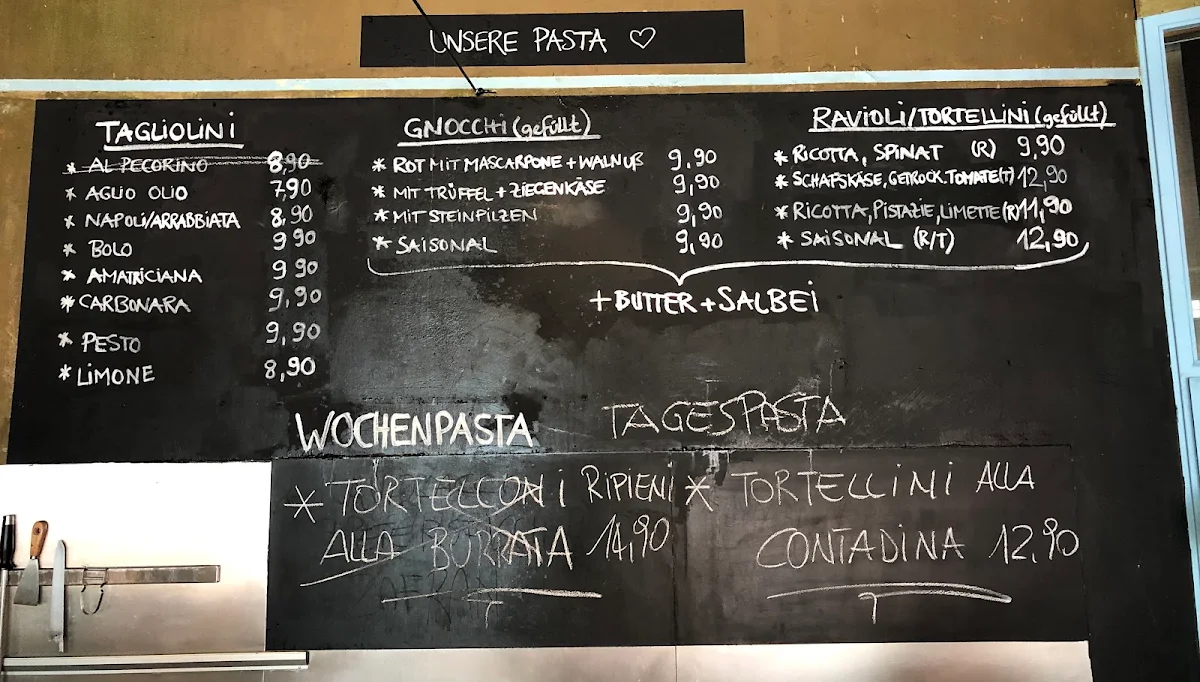 UNSERE PASTA ♡
TAGLIOLINI
* AL PECORINO 8,90
* AGLIO OLIO 7,90
* NAPOLI/ARRABBIATA 8,90
* BOLO 9,90
* AMATRICIANA 9,90
* CARBONARA 9,90
* PESTO 9,90
* LIMONE 8,90
GNOCCHI (gefüllt)
* ROT MIT MASCARPONE + WALNUß 9,90
* MIT TRÜFFEL + ZIEGENKÄSE 9,90
* MIT STEINPILZEN 9,90
* SAISONAL 9,90
RAVIOLI/TORTELLINI (gefüllt)
* RICOTTA, SPINAT (R) 9,90
* SCHAFSKÄSE, GETROCK. TOMATE (T) 12,90
* RICOTTA, PISTAZIE, LIMETTE (R) 11,90
* SAISONAL (R/T) 12,90
+ BUTTER + SALBEI
WOCHENPASTA
* TORTELLONI RIPIENI
ALLA BURRATA 14,90
TAGESPASTA
* TORTELLINI ALLA
CONTADINA 12,90